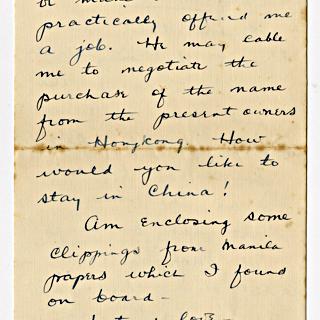 practically offered me
a job. He may cable
me to negotiate the
purchase of the name
from the present owners
in Hongkong. How
would you like to
stay in China!
Am enclosing some
clippings from Manila
papers which I found
on board -